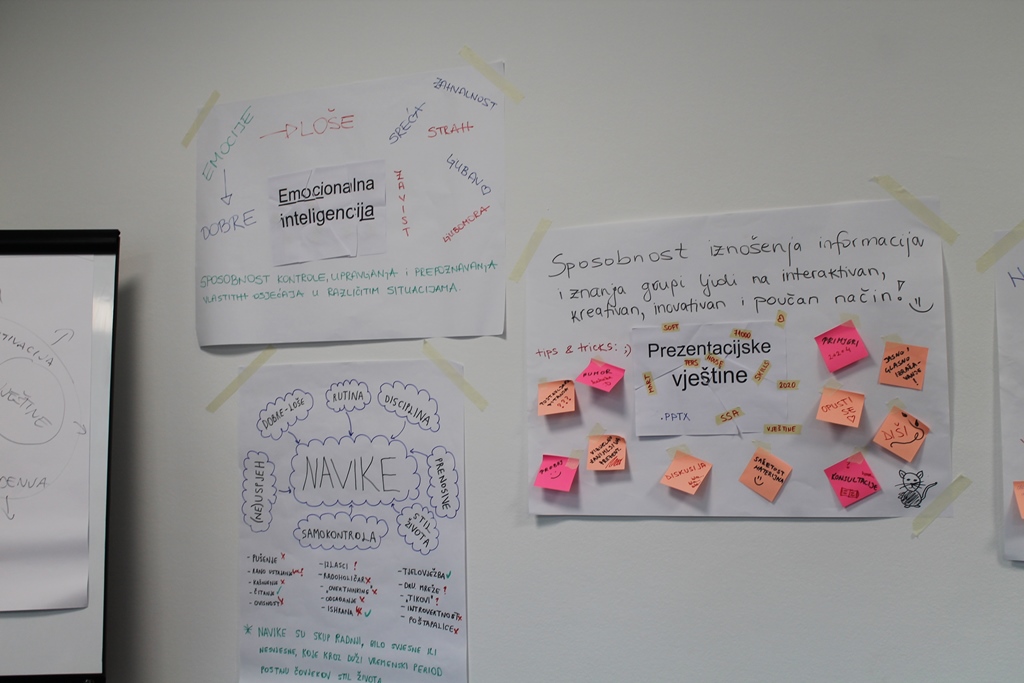 EMOCIJE
→ LOŠE
DOBRE
SREĆA
ZAHVALNOST
STRAH
LJUBAV
LJUBOMORA
ZAVIST
Emocionalna
inteligencija
SPOSOBNOST KONTROLE, UPRAVLJANJA I PREPOZNAVANJA
VLASTITIH OSJEĆAJA U RAZLIČITIM SITUACIJAMA.
DOBRE-LOŠE
RUTINA
DISCIPLINA
(NE)USPJEH
NAVIKE
PRENOSIVE
SAMOKONTROLA
STIL
ŽIVOTA
- PUŠENJE x
- RANO USTAJANJE !
- ČITANJE ✓
- OVISNOST x
- IZLASCI !
- RADOHOLIČAR x
- "OVERTHINKING" x
- ISHRANA x ✓
- TJELOVJEŽBA ✓
- DRU. MREŽE !
- "TIKOVI" !
- INTROVERTNOST x
- POŠTAPALICE x
* NAVIKE SU SKUP RADNJI, BILO SVJESNE ILI
NESVJESNE, KOJE KROZ DUŽI VREMENSKI PERIOD
POSTANU ČOVJEKOV STIL ŽIVOTA
Sposobnost iznošenja informacija
i znanja grupi ljudi na interaktivan,
kreativan, inovativan i poučan način!
tips & tricks: ;)
Prezentacijske
vještine
.PPTX
SOFT
SKILLS
2020
SSA
VJEŠTINE
HUMOR
PRIMJERI
JASNO!
GLASNO
OPUSTI
SE
DIŠI
DISKUSIJA
SAŽETOST
MATERIJALA
KONSULTACIJE